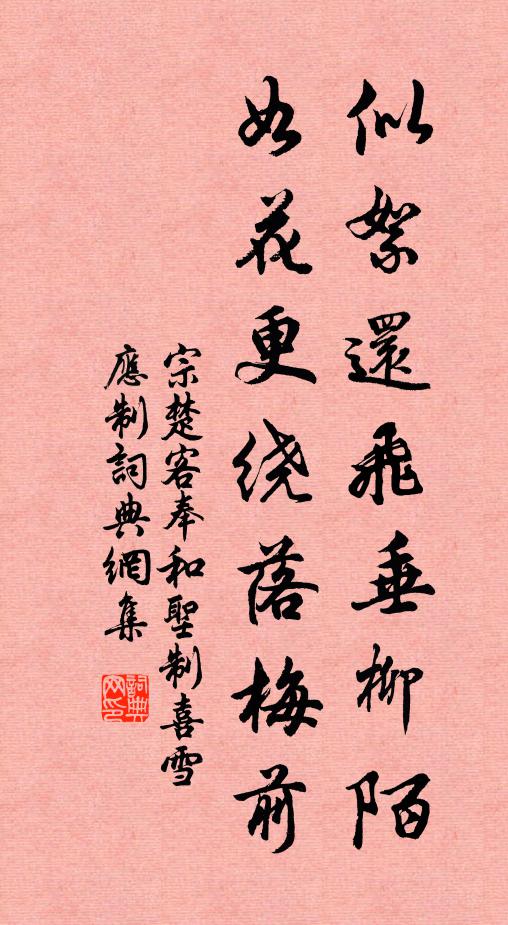 似絮還飛垂柳陌
如花更绕落梅前
宗楚客奉和聖制喜雪
應制詞典網集
詞典网印